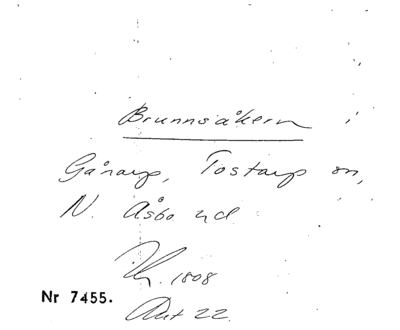 Brunnsåkern i
Gånarp, Tostarp sn,
N. Åsbo hd.
1808
Nr 7455.
Akt 22.